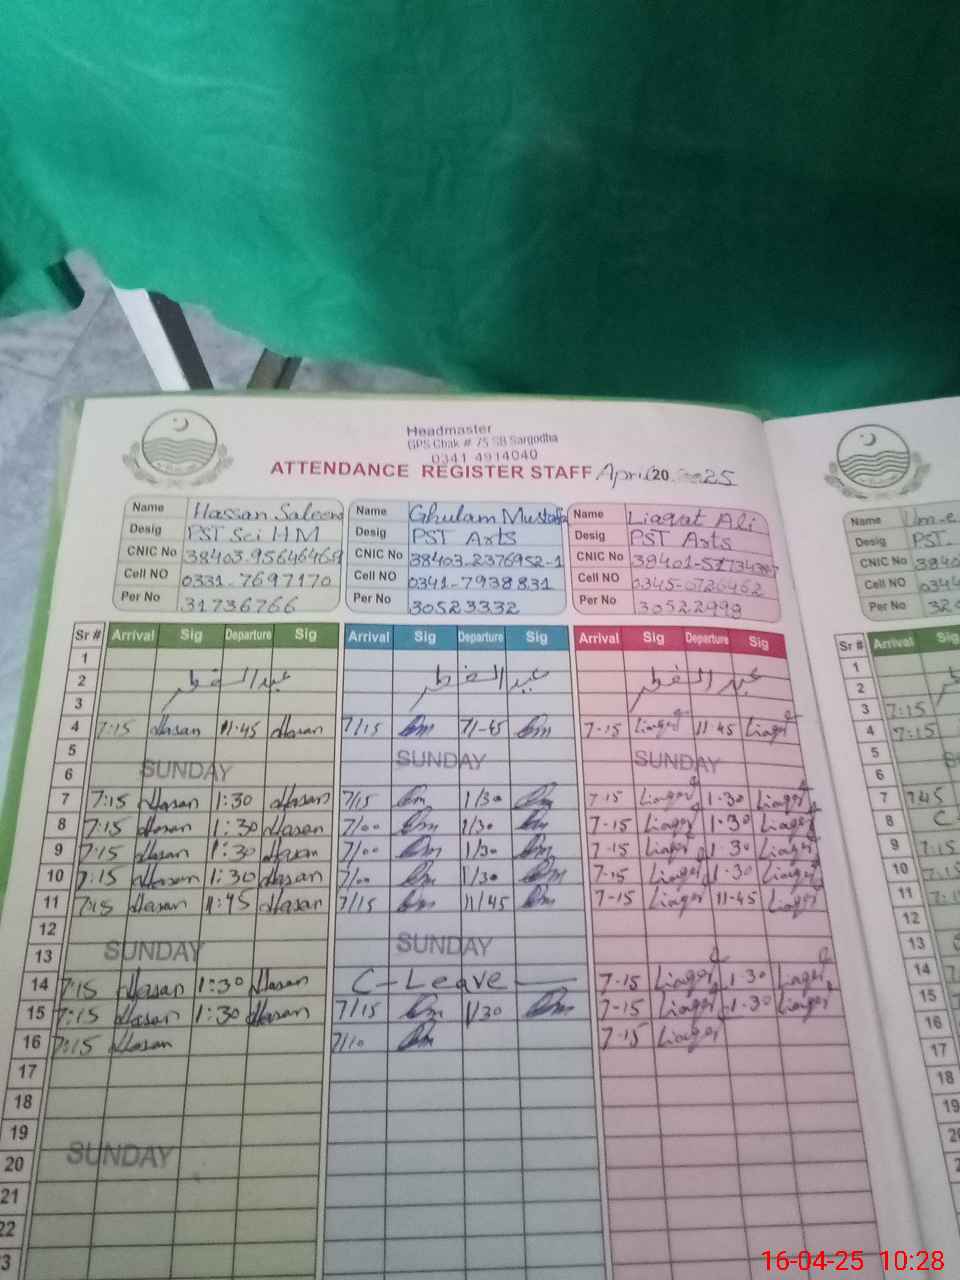 Headmaster
GPS Chak # 75 SB Sargodha
0341 4914040
ATTENDANCE REGISTER STAFF April 20 25
Name Hassan Saleem Name Ghulam Mustafa Name Liaqat Ali Name Um-e
Desig PST Sci HM Desig PST Arts Desig PST Arts Desig PST
CNIC No CNIC No 38403-2376952-1 CNIC No CNIC No 3840
Cell NO 0331-7697170 Cell NO 0341-7938831 Cell NO 0345-0726462 Cell NO 0344
Per No 31736766 Per No 30523332 Per No 30522999 Per No
Sr # Arrival Sig Departure Sig Arrival Sig Departure Sig Arrival Sig Departure Sig Sr # Arrival Sig
1 1
2 عید الفطر عید الفطر عید الفطر 2
3 3 7:15
4 7:15 Hasan 11:45 Hasan 7/15 11-45 7-15 Liaqat 11-45 Liaqat 4 7:15
5 5
6 SUNDAY SUNDAY SUNDAY 6
7 7:15 Hasan 1:30 Hasan 7/15 1/30 7-15 Liaqat 1-30 Liaqat 7 7:45
8 7:15 Hasan 1:30 Hasan 7/00 1/30 7-15 Liaqat 1-30 Liaqat 8 C-
9 7:15 Hasan 1:30 Hasan 7/00 1/30 7-15 Liaqat 1-30 Liaqat 9 7:15
10 7:15 Hasan 1:30 Hasan 7/00 1/30 7-15 Liaqat 1-30 Liaqat 10 7:15
11 7:15 Hasan 11:45 Hasan 7/15 11/45 7-15 Liaqat 11-45 Liaqat 11
12 12
13 SUNDAY SUNDAY 13
14 7:15 Hasan 1:30 Hasan C-Leave 7-15 Liaqat 1-30 Liaqat 14
15 7:15 Hasan 1:30 Hasan 7/15 1/30 7-15 Liaqat 1-30 Liaqat 15
16 7:15 Hasan 7/10 7-15 Liaqat 16
17 17
18 18
19 19
20 SUNDAY
21
22
16-04-25 10:28